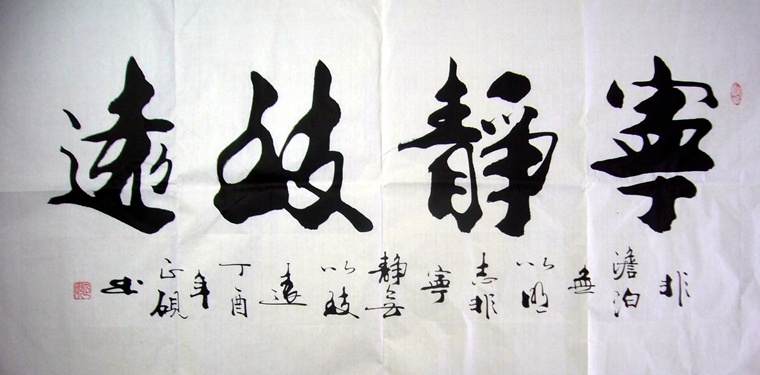 寧靜致遠
非澹泊無以明志非寧静無以致遠丁酉年正硯书